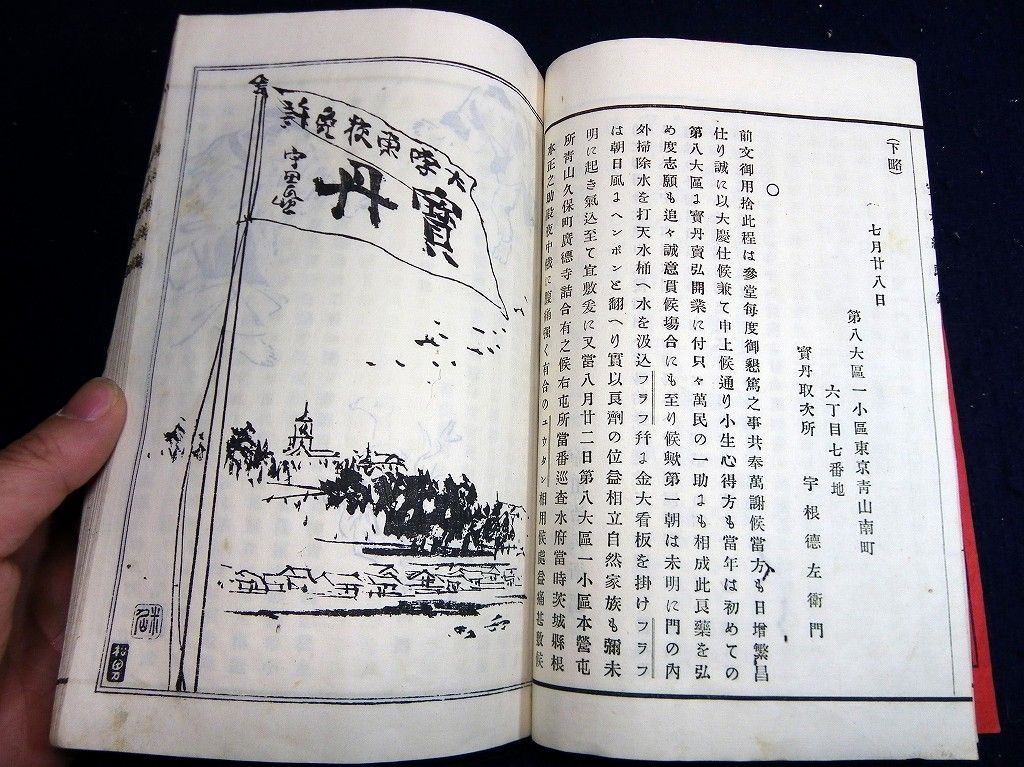 (下略)
七月廿八日
第八大區一小區東京青山南町
六丁目七番地
寳丹取次所 宇根德左衛門
○
前文御用捨此程は參堂每度御懇篤之事共奉萬謝候當方も日增繁昌
仕り誠に以大慶仕候兼て申上候通り小生心得方も當年は初めての
第八大區ょ寳丹賣弘開業に付只々萬民の一助ょも相成此良藥を弘
め度志願も追々誠意貫候塲合にも至り候歟第一朝は未明に門の內
外掃除水を打天水桶へ水を汲込フヲフ幷ょ金大看板を掛けフラフ
は朝日風ょヘンポンと翻へり實以良劑の位益相立自然家族も彌未
明に起き氣込至て宜敷爰に又當八月廿二日第八大區一小區本營屯
所青山久保町廣德寺詰合有之候右屯所當番巡查水府當時茨城縣根
本正之助殿夜中俄に腹痛强く有合のユウタン相用候處益痛甚敷候
大學東校免許
寳丹
守田
松田刀